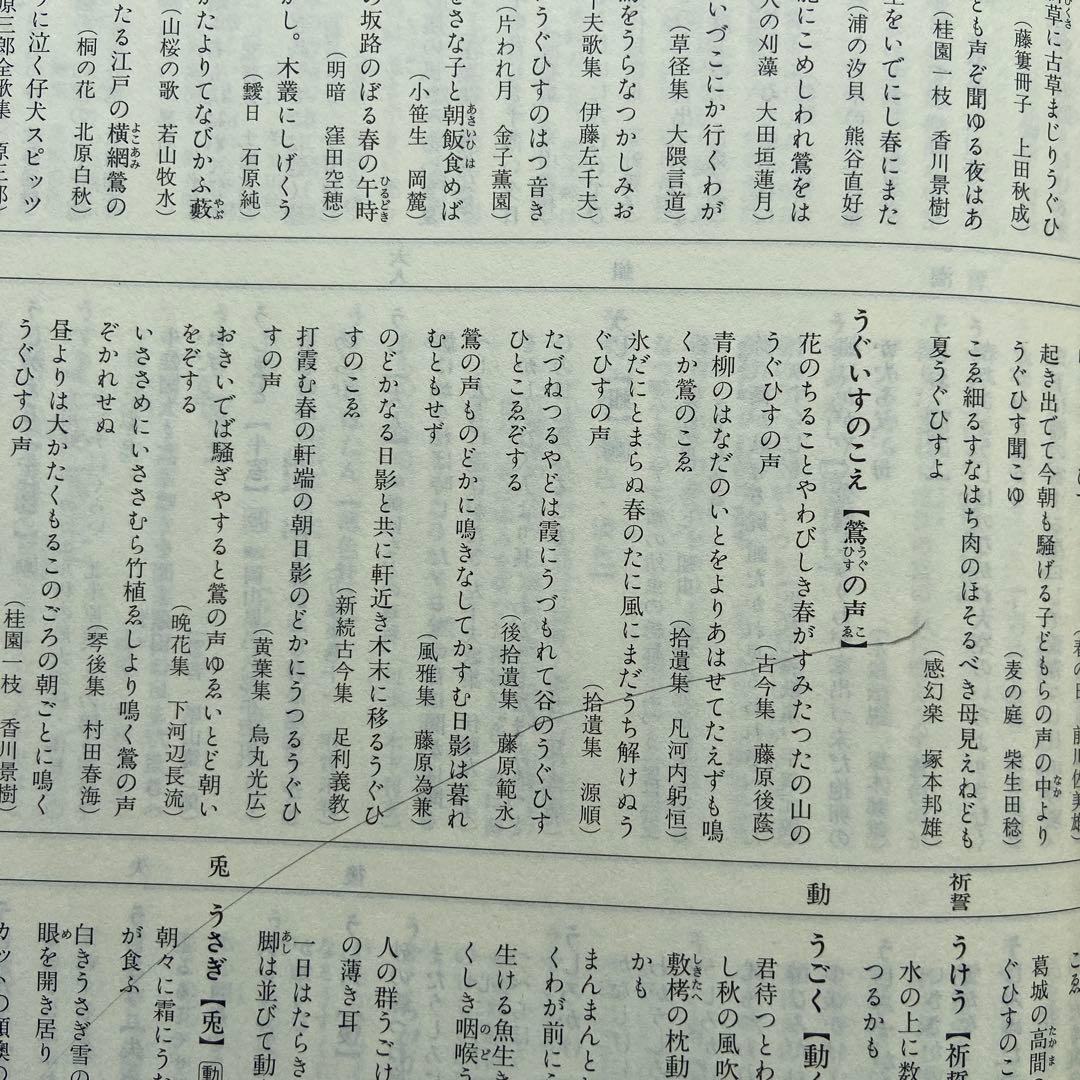 草に古草まじりうぐひ
（藤簍冊子　上田秋成）
とも声ぞ聞ゆる夜はあ
（桂園一枝　香川景樹）
をいでにし春にまた
（浦の汐貝　熊谷直好）
にこめしわれ鶯をは
人の刈藻　大田垣蓮月）
いづこにか行くわが
（草径集　大隈言道）
をうらなつかしみお
千夫歌集　伊藤左千夫）
うぐひすのはつ音き
（片われ月　金子薫園）
をさな子と朝飯食めば
（小笹生　岡麓）
の坂路のぼる春の午時
（明暗　窪田空穂）
かし。木叢にしげくう
（靉日　石原純）
かたよりてなびかふ藪
（山桜の歌　若山牧水）
たる江戸の横網鶯の
（桐の花　北原白秋）
に泣く仔犬スピッツ
起き出でて今朝も騒げる子どもらの声の中より
うぐひす聞こゆ
（麦の庭　柴生田稔）
こゑ細るすなはち肉のほそるべき母見えねども
夏うぐひすよ
（感幻楽　塚本邦雄）
うぐいすのこえ【鶯の声】
花のちることやわびしき春がすみたつたの山の
うぐひすの声
（古今集　藤原後蔭）
青柳のはなだのいとをよりあはせてたえずも鳴
くか鶯のこゑ
（拾遺集　凡河内躬恒）
氷だにとまらぬ春のたに風にまだうち解けぬう
ぐひすの声
（拾遺集　源順）
たづねつるやどは霞にうづもれて谷のうぐひす
ひとこゑぞする
（後拾遺集　藤原範永）
鶯の声ものどかに鳴きなしてかすむ日影は暮れ
むともせず
（風雅集　藤原為兼）
のどかなる日影と共に軒近き木末に移るうぐひ
すのこゑ
（新続古今集　足利義教）
打霞む春の軒端の朝日影のどかにうつるうぐひ
すの声
（黄葉集　烏丸光広）
おきいでば騒ぎやすると鶯の声ゆゑいとど朝い
をぞする
（晩花集　下河辺長流）
いささめにいささむら竹植ゑしより鳴く鶯の声
ぞかれせぬ
（琴後集　村田春海）
昼よりは大かたくもるこのごろの朝ごとに鳴く
うぐひすの声
（桂園一枝　香川景樹）
祈誓
動
兎
こゑ
葛城の高間の
ぐひすのこ
うけう【祈誓
水の上に数
つるかも
うごく【動く
君待つとわ
し秋の風吹
敷栲の枕動
かも
まんまんと
くわが前に
生ける魚生き
くしき咽喉う
人の群うごけ
の薄き耳
一日はたらき
脚は並びて動
うさぎ【兎】動
朝々に霜にう
が食ふ
白きうさぎ雪の
眼を開き居り